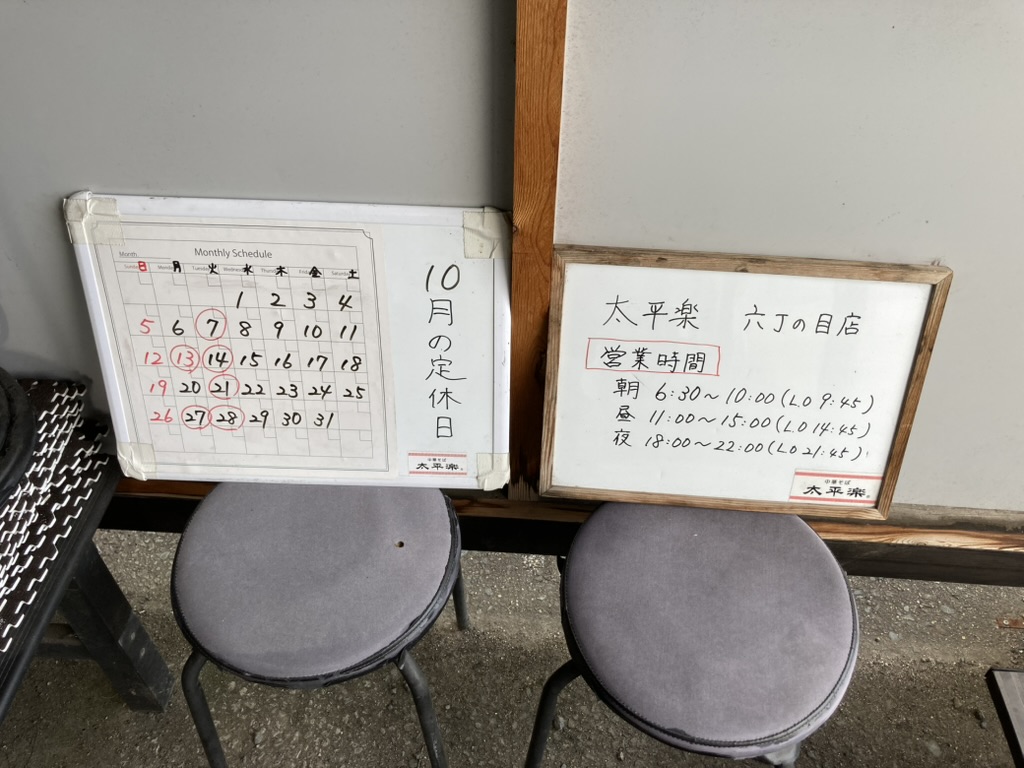 Monthly Schedule
Month
日 月 火 水 木 金 土
1 2 3 4
5 6 7 8 9 10 11
12 13 14 15 16 17 18
19 20 21 22 23 24 25
26 27 28 29 30 31
10月の定休日
中華そば
太平楽
太平楽 六丁の目店
営業時間
朝 6:30～10:00(LO 9:45)
昼 11:00～15:00(LO 14:45)
夜 18:00～22:00(LO 21:45)
中華そば
太平楽